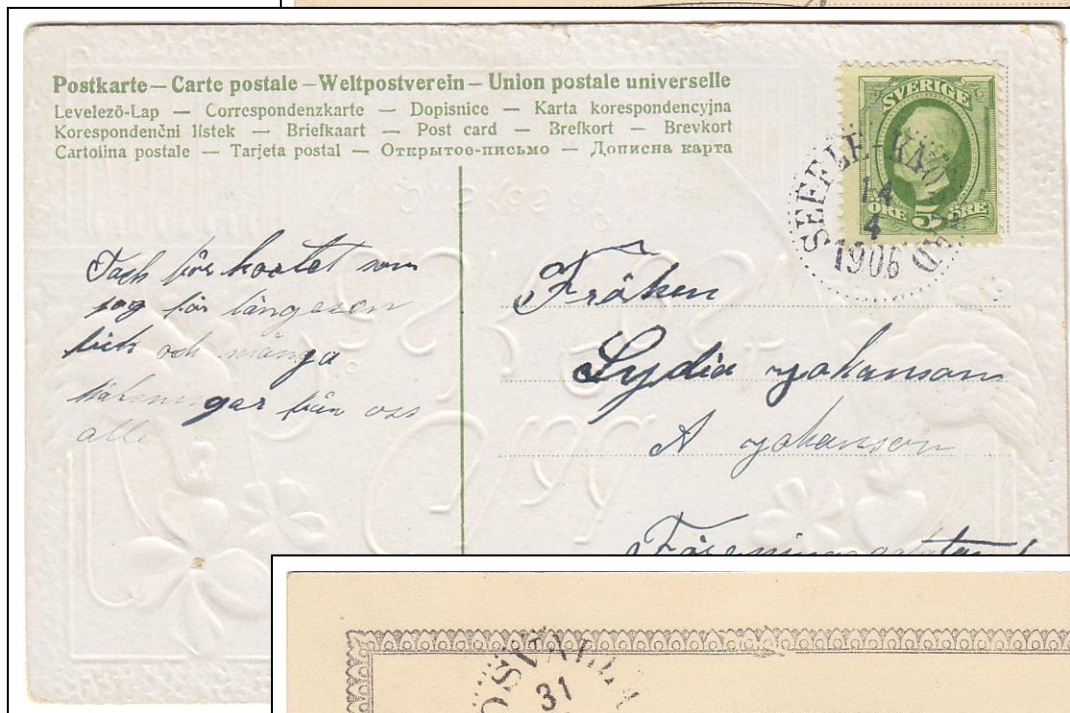 Postkarte — Carte postale — Weltpostverein — Union postale universelle
Levelező-Lap — Correspondenzkarte — Dopisnice — Karta korespondencyjna
Korespondenční lístek — Briefkaart — Post card — Brefkort — Brevkort
Cartolina postale — Tarjeta postal — Открытое-письмо — Дописна карта
SVERIGE
ÖRE 5 ÖRE
SEFFLE
14
4
1906
Tack för kortet som
jag för längesen
fick och många
från oss
alla
Fröken
Lydia Johanson
A Johanson
31